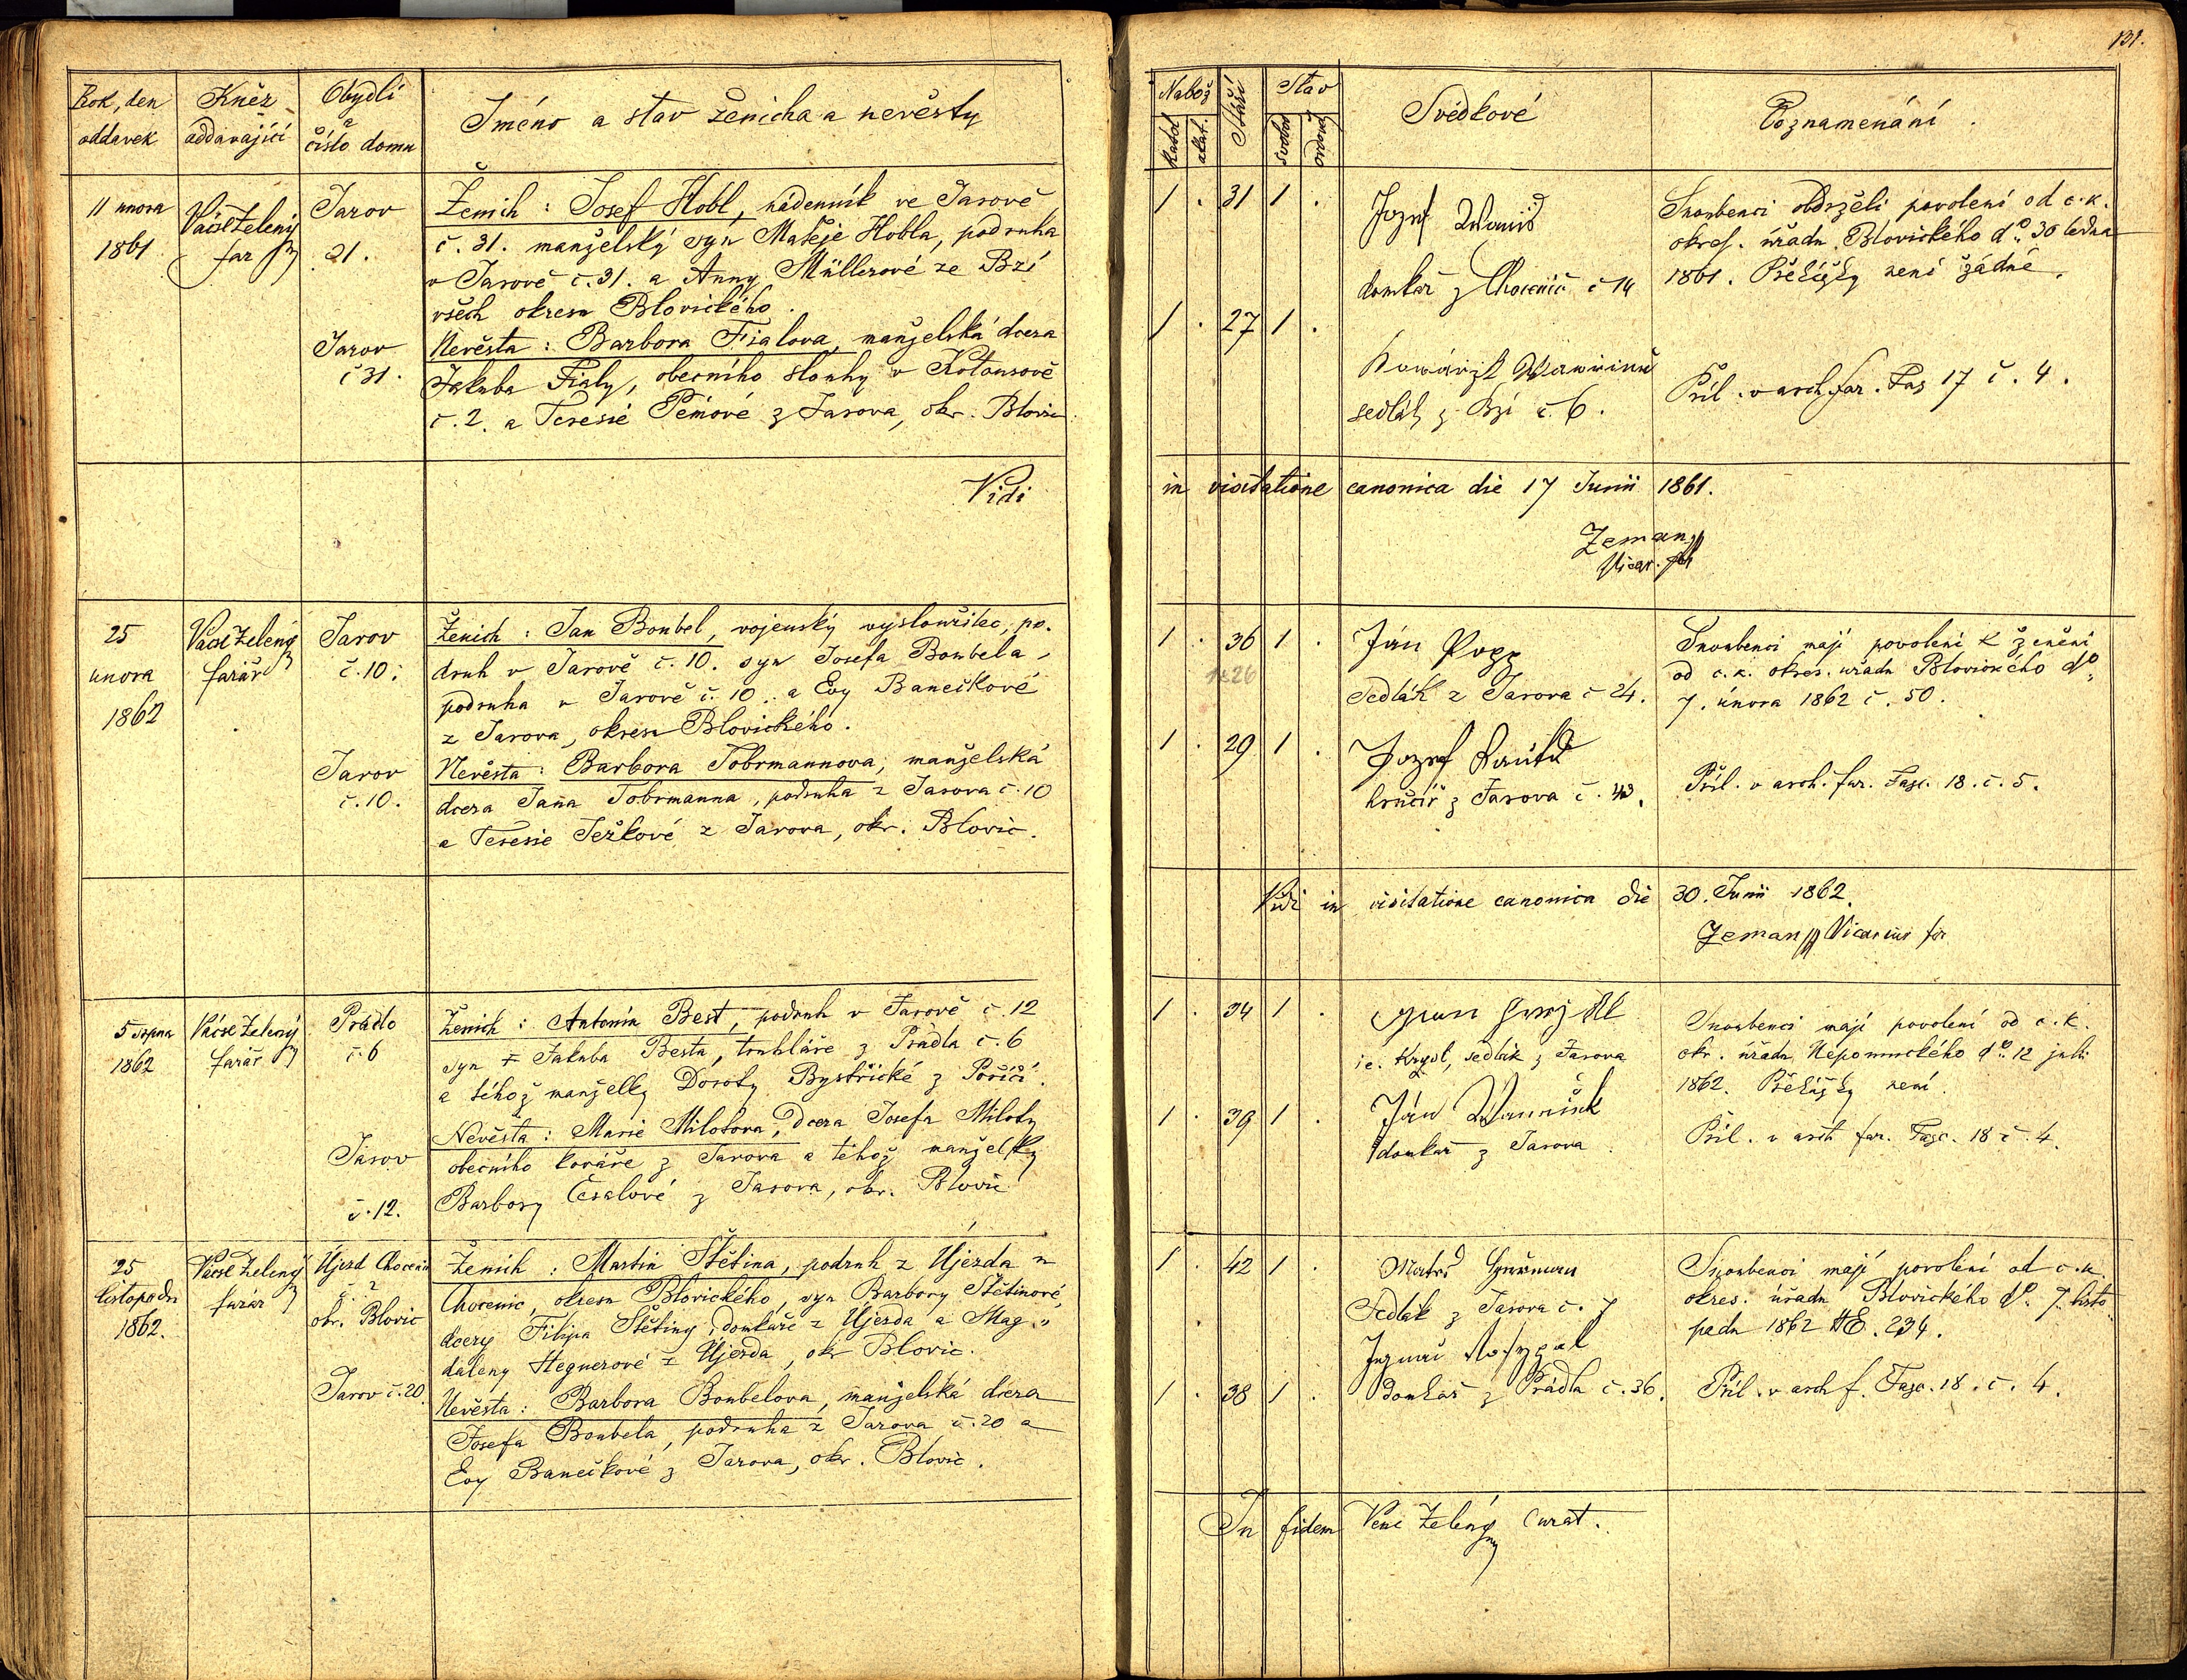 Rok, den
oddavek
Kněz
oddavající
Obydlí
a
číslo domu
Jméno a stav ženicha a nevěsty
11 unora
1861
Václ Zelený
far
Jarov
21.
Ženich: Josef Hobl, nádenník ve Jarově
č. 31. manželský syn Matěje Hobla, podruha
v Jarově č. 31. a Anny Müllerové ze Bzí
všech okresu Blovického.
Jarov
č 31.
Nevěsta: Barbora Fialova, manželská dcera
Jakuba Fialy, obecního slouhy v Kotousově
č. 2. a Teresie Pémové z Jarova, okr. Blovic
Vidi
25
unora
1862
Václ Zelený
farář
Jarov
č. 10.
Ženich: Jan Boubel, vojenský vysloužilec, po-
druh v Jarově č. 10. syn Josefa Boubela,
podruha v Jarově č. 10. a Evy Banečkové
z Jarova, okresu Blovického.
Jarov
č. 10.
Nevěsta: Barbora Tobrmannova, manželská
dcera Jana Tobrmanna, podruha z Jarova č. 10
a Teresie Ježkové z Jarova, okr. Blovic.
5 srpna
1862
Václ Zelený
farář
Prádlo
č. 6
Ženich: Antonín Best, podruh v Jarově č. 12
syn † Jakuba Besta, truhláře z Prádla č. 6
a téhož manželky Doroty Bystřické z Poříčí.
Jarov
č. 12.
Nevěsta: Marie Milotova, dcera Josefa Miloty
obecního kováře z Jarova a téhož manželky
Barbory Česalové z Jarova, okr. Blovic
25
listopadu
1862.
Václ Zelený
farář
Újezd Chocenic
č. 2
okr. Blovic
Ženich: Martin Štětina, podruh z Újezda u
Chocenic, okresu Blovického, syn Barbory Štětinové,
dcery Filipa Štětiny, domkáře z Újezda a Mag-
daleny Hegnerové z Újezda, okr Blovic.
Jarov č. 20.
Nevěsta: Barbora Boubelova, manželská dcera
Josefa Boubela, podruha z Jarova č. 20 a
Evy Banečkové z Jarova, okr. Blovic.
131.
Nabož
katol
akat.
Stáří
Stav
svobod
ovdově
Svědkové
Poznamenání.
1 . 31 1 .
Jozef
domkař z Chocenic č 14
Snoubenci obdrželi povolení od c. k.
okres. úřadu Blovického do 30 ledna
1861. Překážky není žádné.
1 . 27 1 .
sedlák z Bzí č. 6.
Příl. v arch far. Fas 17 č. 4.
in visitatione canonica die 17 Junii 1861.
Zeman
Vicar.
1 . 36 1 .
26
Ján Popp
Sedlák z Jarova č 24.
Snoubenci mají povolení k ženění
od c. k. okres. uřadu Blovického do
7. února 1862 č. 50.
1 . 29 1 .
Jozef
hrnčíř z Jarova č. 43.
Příl. v arch. far. Fasc. 18. č. 5.
Vidi in visitatione canonica die 30. Junii 1862.
Zeman Vicarius for
1 . 34 1 .
ie. Krysl, sedlák z Jarova
Snoubenci mají povolení od c. k.
okr. úřadu Nepomuckého do 12 juli
1862. Překážky není.
1 . 39 1 .
Ján
domkař z Jarova
Příl. v arch far. Fasc. 18 č. 4.
1 . 42 1 .
Matěj
Sedlák z Jarova č. 7
Snoubenci mají povolení od c. k.
okres. úřadu Blovického do 7. listo
padu 1862 NE. 234.
1 . 38 1 .
domkař z Prádla č. 36.
Příl. v arch f. Fasc. 18. č. 4.
In fidem Vencl Zelený Curat.